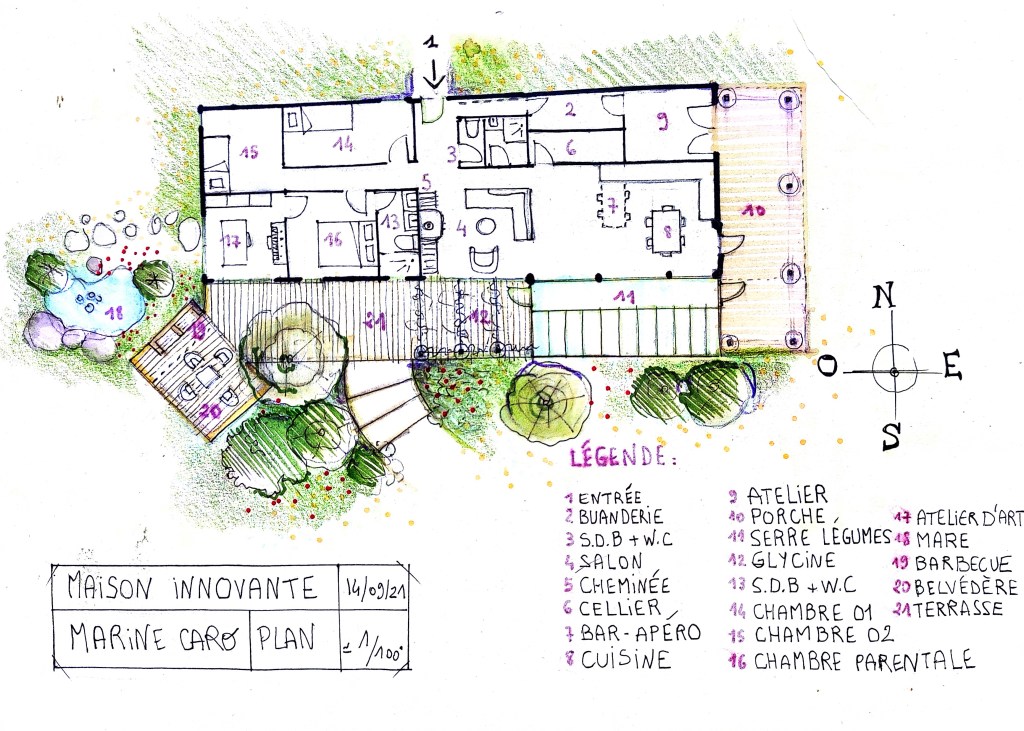 1
2
9
14
15
3
6
5
7
10
13
4
8
17
16
11
18
19
21
12
20
N
O
E
S
LÉGENDE:
1 ENTRÉE
2 BUANDERIE
3 S.D.B + W.C
4 SALON
5 CHEMINÉE
6 CELLIER
7 BAR-APÉRO
8 CUISINE
9 ATELIER
10 PORCHE
11 SERRE LÉGUMES
12 GLYCINE
13 S.D.B + W.C
14 CHAMBRE 01
15 CHAMBRE 02
16 CHAMBRE PARENTALE
17 ATELIER D'ART
18 MARE
19 BARBECUE
20 BELVÉDÈRE
21 TERRASSE
MAISON INNOVANTE 14/09/21
MARINE CARO PLAN ± 1/100°